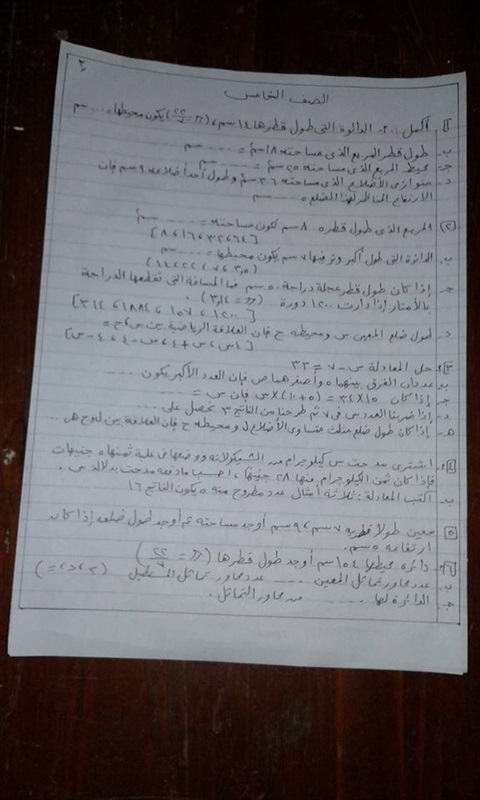 ٣
الصف الخامس
١ أكمل :- ٢٠- الدائرة التى طول قطرها ١٤سم ، (ط = ٢٢/٧) يكون محيطها .... سم
ب- طول قطر المربع الذى مساحته ١٨سم٢ = ..... سم
ج- محيط المربع الذى مساحته ٢٥سم٢ = ..... سم
د- متوازى الأضلاع الذى مساحته ٣٦سم٢ وطول أحد أضلاعه ٩سم فإن
الارتفاع المناظر لهذا الضلع ..... سم
(٢) المربع الذى طول قطره ٨سم تكون مساحته = ..... سم٢
[٨ ، ١٦ ، ٣٢ ، ٦٤]
ب- الدائرة التى طول أكبر وتر فيها ٧سم يكون محيطها = ..... سم
(١٤ ، ٢٢ ، ٧ ، ٣,٥)
ج- إذا كان طول قطر عجلة دراجة ٥٠سم فما المسافة التى تقطعها الدراجة
بالأمتار إذا دارت ١٢٠٠ دورة (ط = ٣,١٤)
[٣١٤ ، ١٨٨٤ ، ١٥٧ ، ١٢٠٠]
د- طول ضلع المعين س ومحيطه ح فإن العلاقة الرياضية بين س ، ح =
[٤س ، س + ٤ ، س - ٤ ، ٤ - س]
٣ أ- حل المعادلة س - ٧ = ٣٢
ب- عددان الفرق بينهما ٥ وأصغرهما ص فإن العدد الأكبر يكون ....
ج- إذا كان ١٥ × ٣٤ = (٥ + ١٠) × س فإن س = ....
د- إذا ضربنا العدد س فى ٧ ثم طرحنا من الناتج ٣ نحصل على ....
هـ- إذا كان طول ضلع مثلث متساوى الأضلاع ل ومحيطه ح فإن العلاقة بين ل ، ح هى ..
٤ أ- اشترى مدحت س كيلوجرام من الشيكولاته ووضعها فى علبة ثمنها ٥ جنيهات
فإذا كان ثمن الكيلوجرام منها ٢٨ جنيهًا ، احسب ما دفعه مدحت بدلالة س .
ب- اكتب المعادلة : ثلاثة أمثال عدد مطروح منه ٥ يكون الناتج ١٦
٥ معين طولا قطريه ٧سم ، ٩سم أوجد مساحته ثم أوجد طول ضلعه إذا كان
ارتفاعه ٥سم .
٦ أ- دائرة محيطها ١٥٤سم أوجد طول قطرها (ط = ٢٢/٧)
ب- عدد محاور تماثل المعين ..... عدد محاور تماثل المستطيل (> ، < ، =)
ج- الدائرة لها ......... من محاور التماثل .